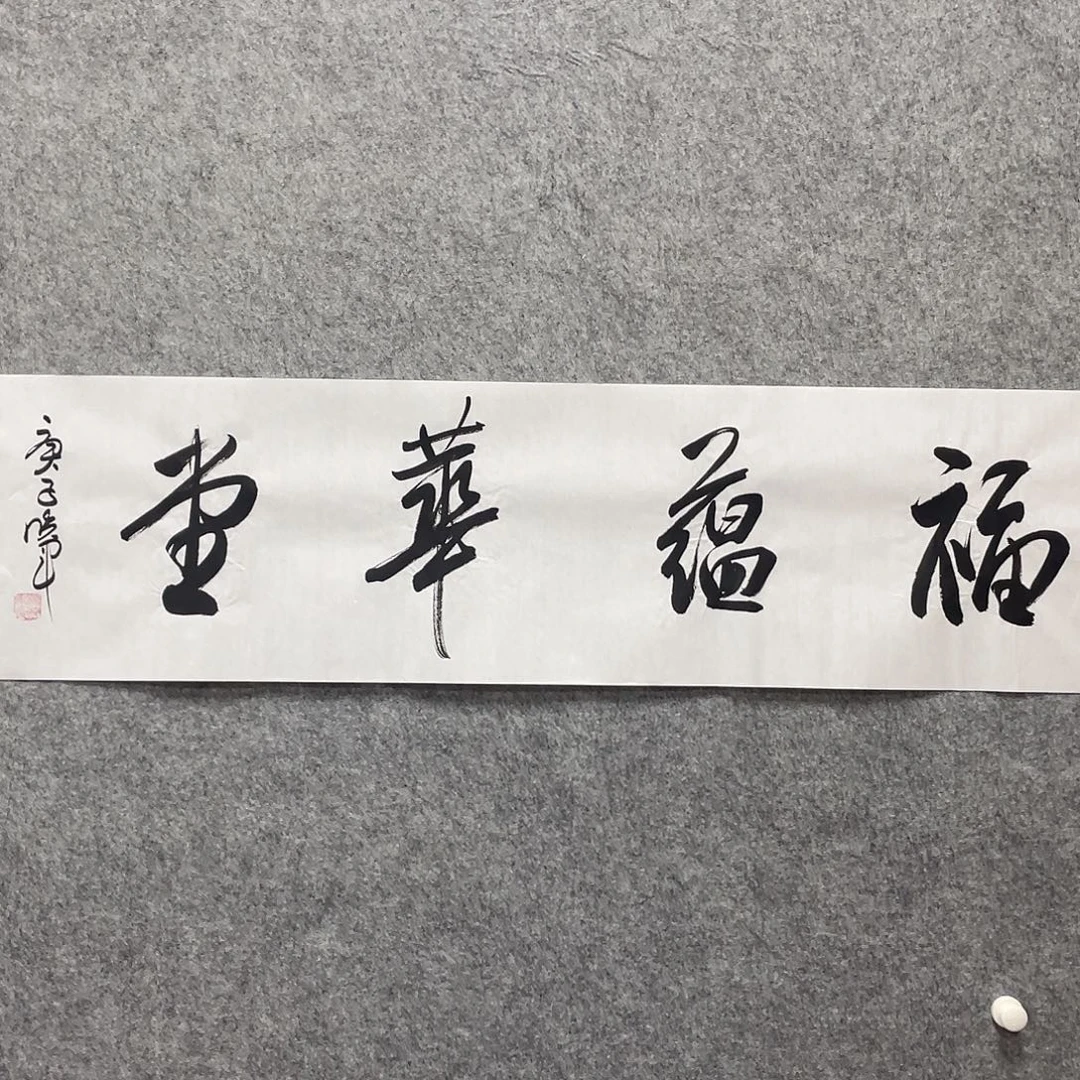 福蘊華堂
庚子